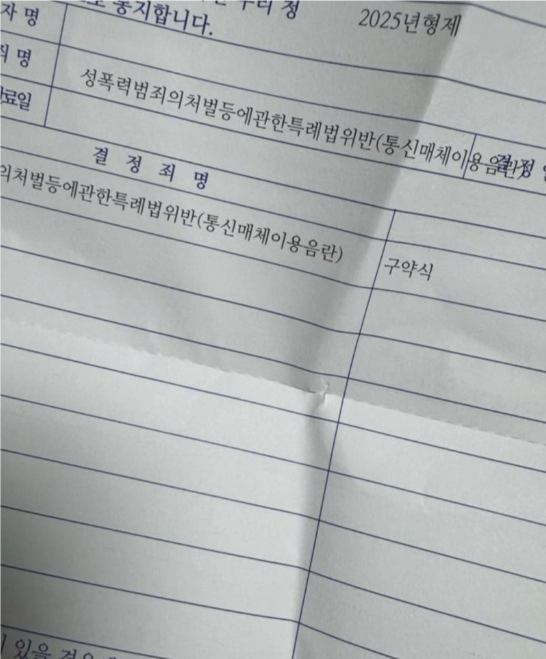 통지합니다.
2025년형제
자 명
죄 명
성폭력범죄의처벌등에관한특례법위반(통신매체이용음란)
료일
결정
결 정 죄 명
의처벌등에관한특례법위반(통신매체이용음란)
구약식
있을 경우에